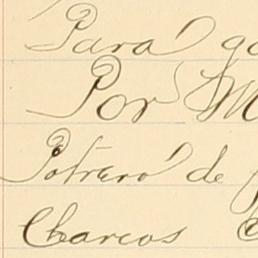 Para
Por
Potrero de
Charcos